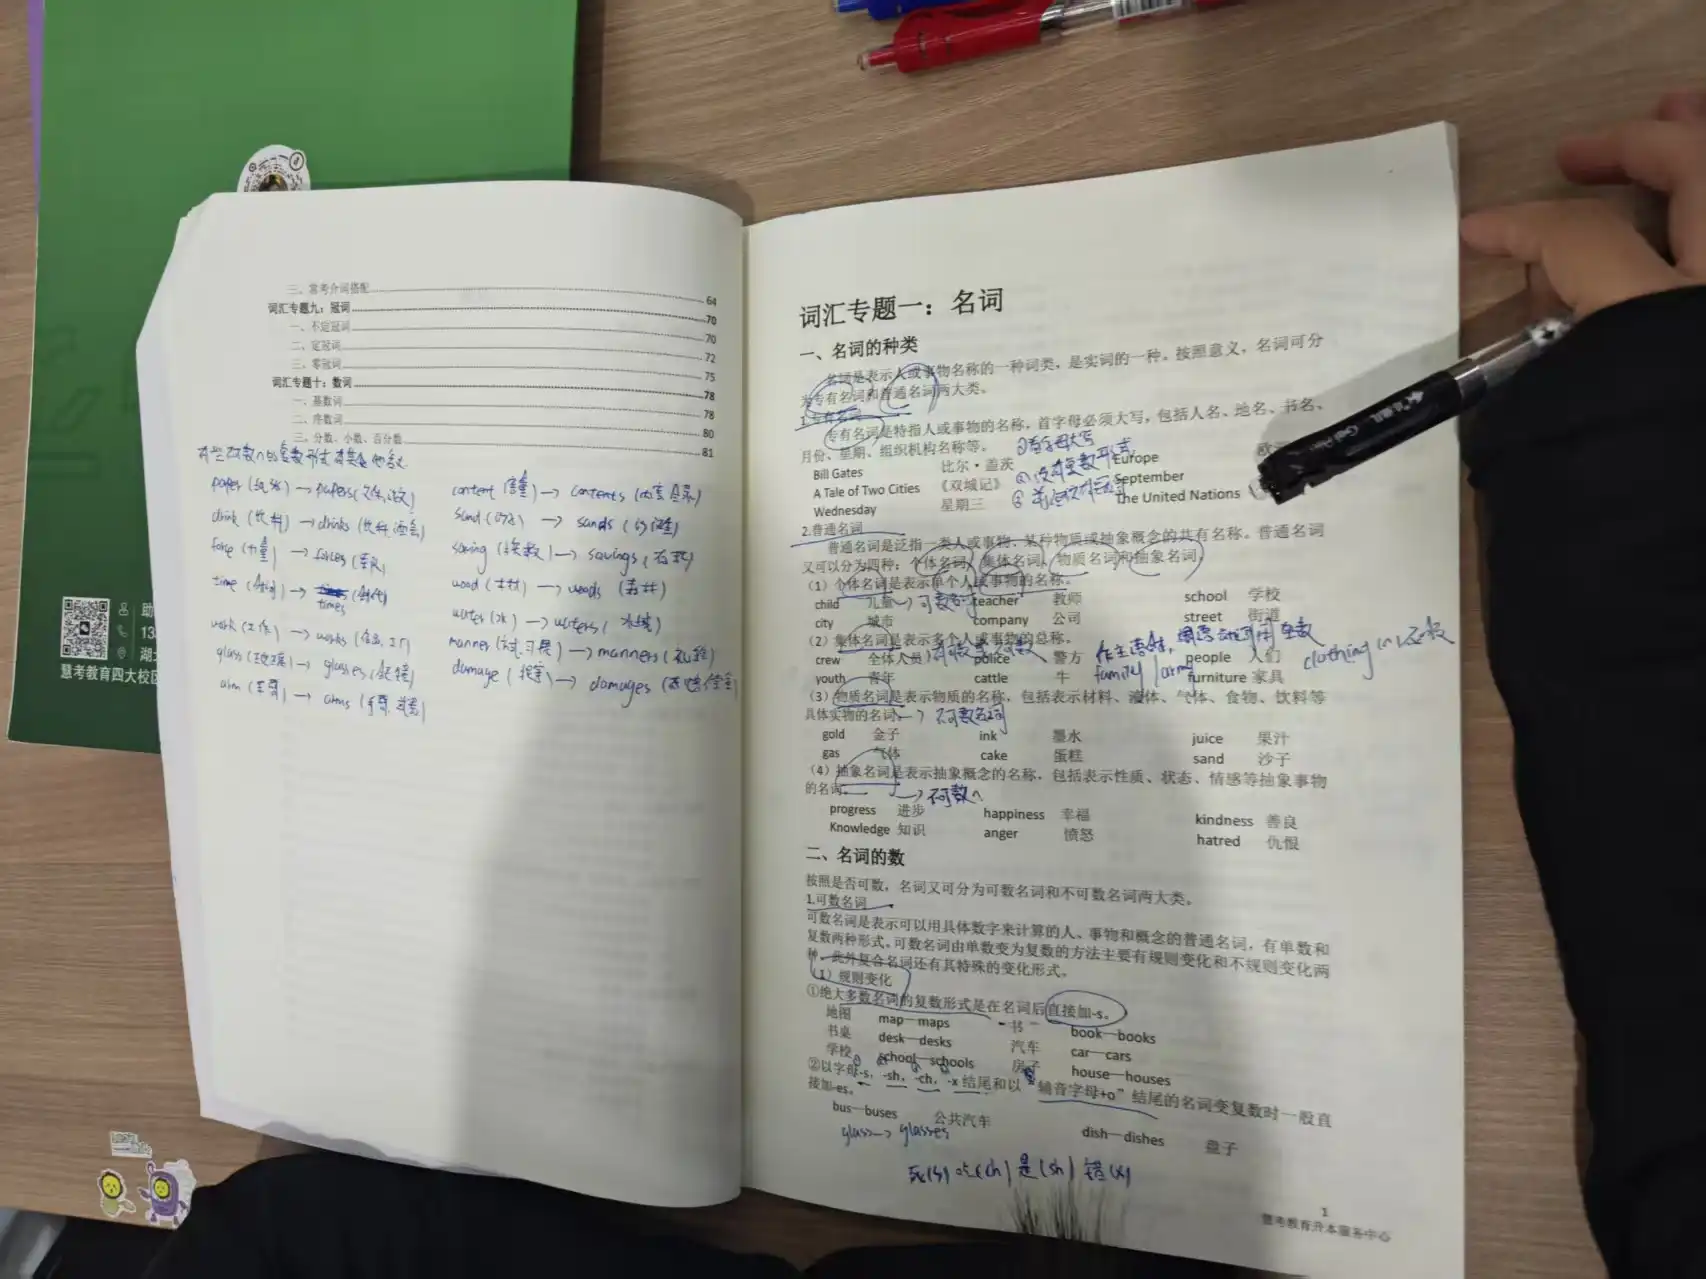 三、常考介词搭配 64
词汇专题九：冠词 70
一、不定冠词 70
二、定冠词 72
三、零冠词 75
词汇专题十：数词 78
一、基数词 78
二、序数词 80
三、分数、小数、百分数 81
paper → papers
drink (饮料) → drinks
force (力量) → forces
time (时间) → times (时代)
work (工作) → works
glass (玻璃) → glasses (眼镜)
arm (手臂) → arms
content → contents
sand → sands
saving → savings
wood (木材) → woods (森林)
water (水) → waters
manner → manners
damage → damages
慧考教育四大校区
词汇专题一：名词
一、名词的种类
名词是表示人或事物名称的一种词类，是实词的一种。按照意义，名词可分
为专有名词和普通名词两大类。
1.专有名词
专有名词是特指人或事物的名称，首字母必须大写，包括人名、地名、书名、
月份、星期、组织机构名称等。
①首字母大写
Bill Gates 比尔·盖茨 Europe 欧
A Tale of Two Cities 《双城记》 September
Wednesday 星期三 The United Nations
2.普通名词
普通名词是泛指一类人或事物，某种物质或抽象概念的共有名称。普通名词
又可以分为四种：个体名词、集体名词、物质名词和抽象名词。
（1）个体名词是表示单个人或事物的名称。
child 儿童 → 可数 teacher 教师 school 学校
city 城市 company 公司 street 街道
（2）集体名词是表示多个人或事物的总称。
crew 全体人员 police 警方 people 人们
youth 青年 cattle 牛 family / army furniture 家具 clothing
（3）物质名词是表示物质的名称，包括表示材料、液体、气体、食物、饮料等
具体实物的名词。 → 不可数名词
gold 金子 ink 墨水 juice 果汁
gas 气体 cake 蛋糕 sand 沙子
（4）抽象名词是表示抽象概念的名称，包括表示性质、状态、情感等抽象事物
的名词。 → 不可数
progress 进步 happiness 幸福 kindness 善良
Knowledge 知识 anger 愤怒 hatred 仇恨
二、名词的数
按照是否可数，名词又可分为可数名词和不可数名词两大类。
1.可数名词
可数名词是表示可以用具体数字来计算的人、事物和概念的普通名词，有单数和
复数两种形式。可数名词由单数变为复数的方法主要有规则变化和不规则变化两
种，此外复合名词还有其特殊的变化形式。
（1）规则变化
①绝大多数名词的复数形式是在名词后直接加-s。
地图 map—maps 书 book—books
书桌 desk—desks 汽车 car—cars
学校 school—schools 房子 house—houses
②以字母-s，-sh，-ch，-x 结尾和以“辅音字母+o”结尾的名词变复数时一般直
接加-es。
bus—buses 公共汽车 dish—dishes 盘子
glass → glasses
死(s) 吃(ch) 是(sh) 错(x)
1
慧考教育升本服务中心